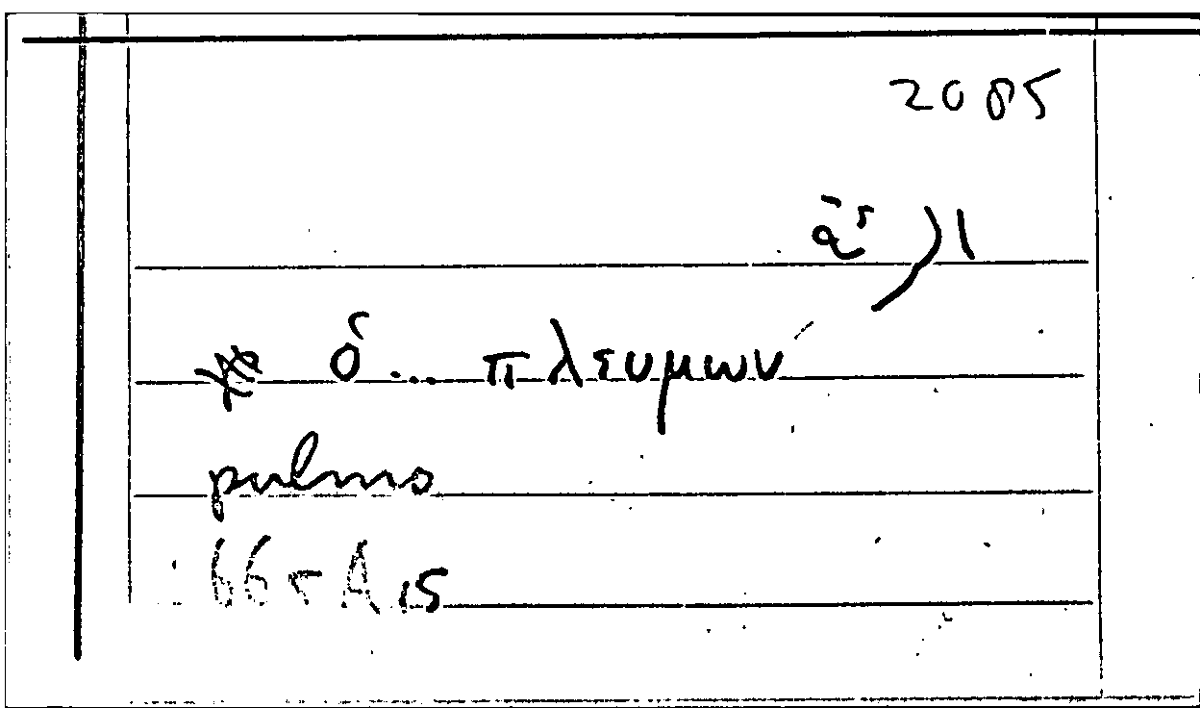 2085
* ὁ... πλευμων
pulmo
665 A 15